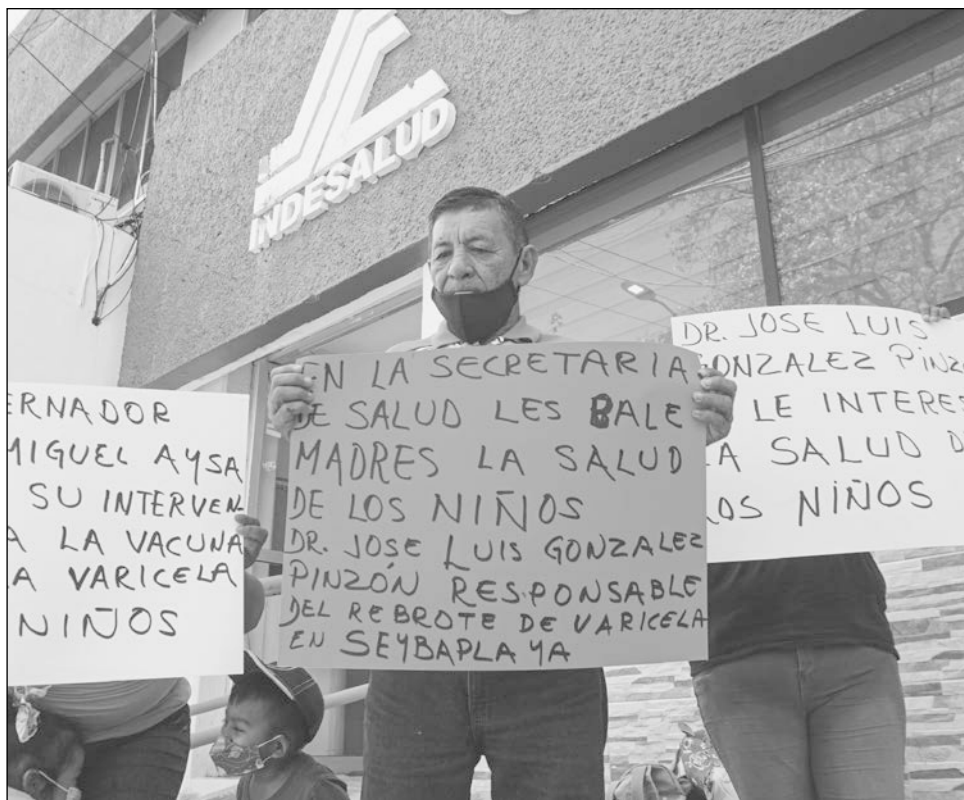 INDESALUD
ERNADOR
MIGUEL AYSA
SU INTERVEN
A LA VACUNA
A VARICELA
NIÑOS
EN LA SECRETARIA
DE SALUD LES BALE
MADRES LA SALUD
DE LOS NIÑOS
DR. JOSE LUIS GONZALEZ
PINZÓN RESPONSABLE
DEL REBROTE DE VARICELA
EN SEYBAPLAYA
DR. JOSE LUIS
GONZALEZ PINZO
LE INTERES
LA SALUD DE
LOS NIÑOS